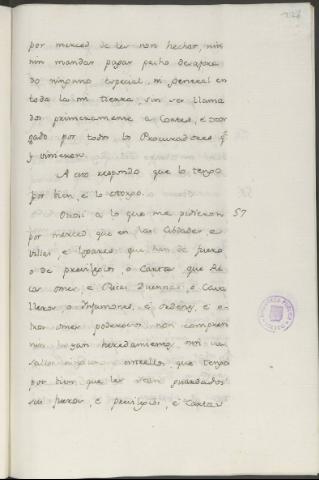 por merced de les non hechar, nin
nin mandar pagar pecho desafora
do ninguno especial, ni general en
toda la mi tierra, sin ser llama
dos primeramente a Cortes, e otor
gado por todos los Procuradores q.e
y vinieren.
A esto respondo que lo tengo
por bien, e lo otorgo.
Otrosi a lo que me pidieron 57
por merced que en las Cibdades e
villas, e logares que han de fuero
o de previlegios, o Cartas que
omes e Ricas Duenas, o Cava
lleros, o Infanzones, e e o
tros omes poderosos non compren
nin hayan heredamientos, nin va
sallos en ellos, que tengo
por bien que les sean guardados
sus fueros, e previlegios, e Cartas